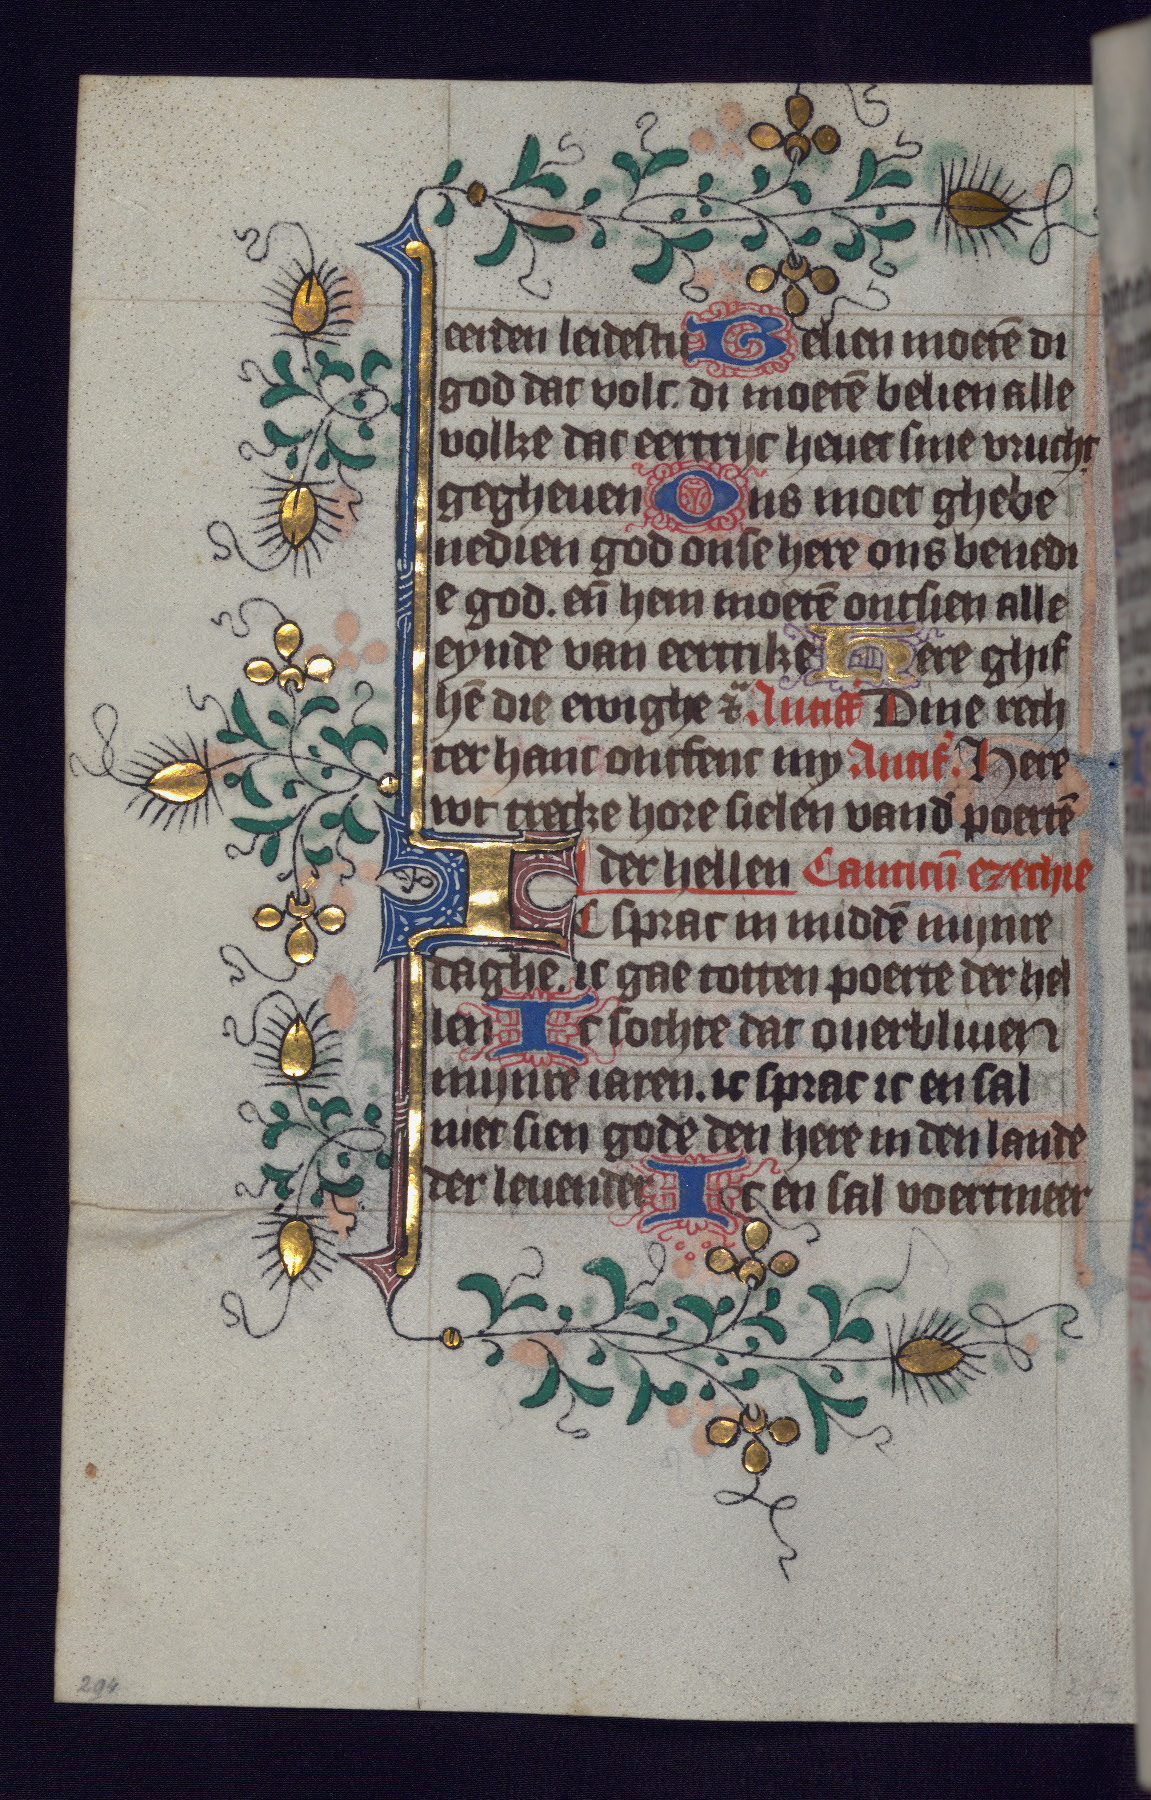 eerden leidestu Belien moetē di
god dat volc. di moetē belien alle
volke dat eertrijc heuet sine vrucht
gegheuen Ons moet ghebe
nedien god onse here ons benedi
e god. eñ hem moetē ontsien alle
eynde van eertrike Here ghif
hē die ewighe Antiff Dine rech
ter hant ontfenc my Antif. Here
wt trecke hore sielen vand poertē
der hellen Canticū ezechie
IC sprac in middē mijnre
daghe. ic gae totten poerte der hel
len Ic sochte dat ouerbliuen
mijnre iaren. ic sprac ic en sal
niet sien gode den here in den lande
der leuender Ic en sal voertmeer
294